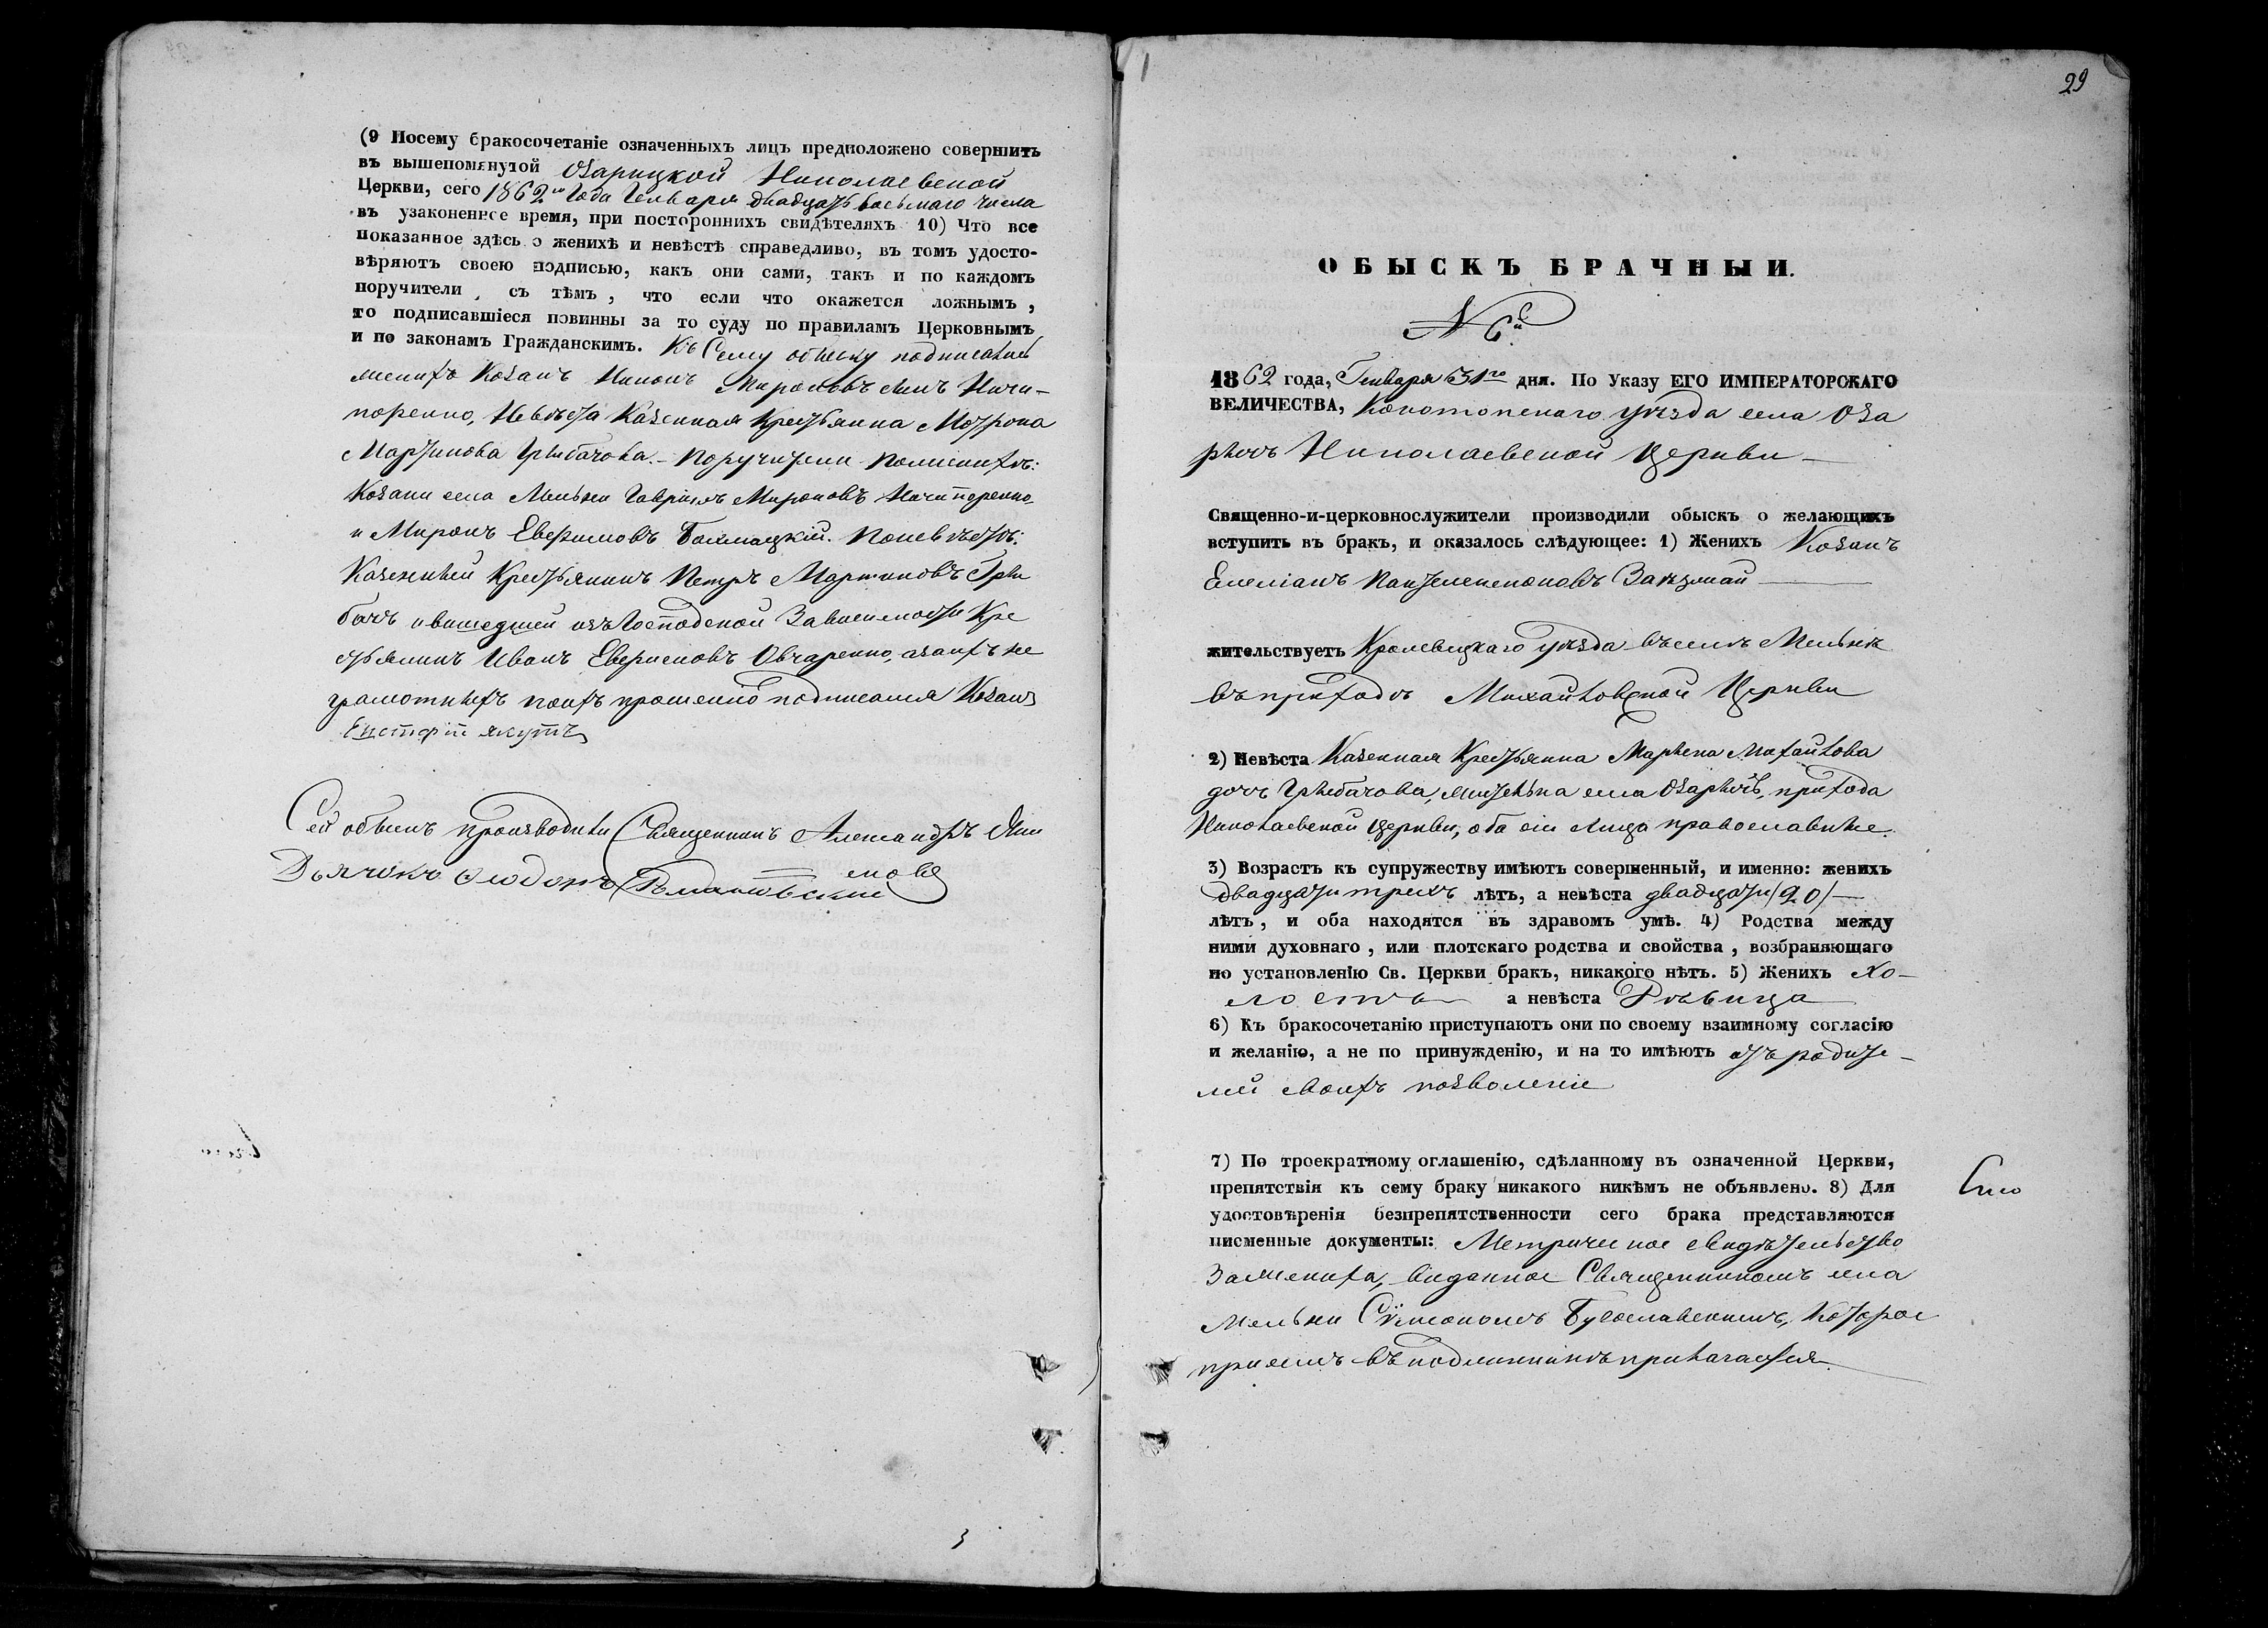 (9 Посему бракосочетаніе означенныхъ лицъ предположено совершить
въ вышепомянутой Озарицкой Николаевской
Церкви, сего 1862го года Генваря двадцать восьмаго числа
въ узаконенное время, при постороннихъ свидѣтеляхъ 10) Что все
показанное здѣсь о женихѣ и невѣстѣ справедливо, въ томъ удосто-
вѣряютъ своею подписью, какъ они сами, такъ и по каждомъ
поручители, съ тѣмъ, что если что окажется ложнымъ,
то подписавшіеся повинны за то суду по правиламъ Церковнымъ
и по законамъ Гражданскимъ. Къ Сему обыску подписались
женихъ Козакъ Никонъ Мироновъ сынъ Ничи-
поренко, Невѣста Казенная Крестьянка Мотрона
Мартинова Грибачова. – Поручители По женихѣ:
Козаки села Мельни Гавріилъ Мироновъ Ничипоренко
и Миронъ Евфимовъ. По невѣстѣ:
Казенный Крестьянинъ Петръ Мартиновъ Гри
бачъ и вышедшій изъ Господской Зависимости Кре
стьянинъ Иванъ Овчаренко, а за ихъ не
грамотныхъ по ихъ прошенію подписался Козакъ
Сей обыскъ производили Священникъ Александръ
Дьячокъ Ѳеодоръ
29
ОБЫСКЪ БРАЧНЫЙ.
N 6й
1862 года, Генваря 31го дня. По Указу ЕГО ИМПЕРАТОРСКАГО
ВЕЛИЧЕСТВА, Конотопскаго уѣзда села Оза
ричъ Николаевской Церкви –
Священно-и-церковнослужители производили обыскъ о желающихъ
вступить въ бракъ, и оказалось слѣдующее: 1) Женихъ Козакъ
Емеліанъ Пантелеимоновъ
жительствуетъ Кролевецкаго уѣзда въ селѣ Мельнѣ
въ приходѣ Михайловской Церкви
2) Невѣста Казенная Крестьянка Марѳена Михайлова
дочь Грибачова, жителька села Озаричъ, прихода
Николаевской Церкви, оба сіи лица православные.
3) Возрастъ къ супружеству имѣютъ совершенный, и именно: женихъ
двадцати трехъ лѣтъ, а невѣста двадцати /20/ –
лѣтъ, и оба находятся въ здравомъ умѣ. 4) Родства между
ними духовнаго, или плотскаго родства и свойства, возбраняющаго
по установленію Св. Церкви бракъ, никакого нѣтъ. 5) Женихъ Хо-
лостъ а невѣста Дѣвица
6) Къ бракосочетанію приступаютъ они по своему взаимному согласію
и желанію, а не по принужденію, и на то имѣютъ отъ родите-
лей своихъ позволеніе
7) По троекратному оглашенію, сдѣланному въ означенной Церкви,
препятствія къ сему браку никакого никѣмъ не объявлено. 8) Для
удостовѣренія безпрепятственности сего брака представляются
писменные документы: Метрическое свидѣтельство
За жениха, виданное Священникомъ села
Мельни Сѵмеономъ Богославскимъ, Которое
при семъ въ подлинникѣ прилагается.